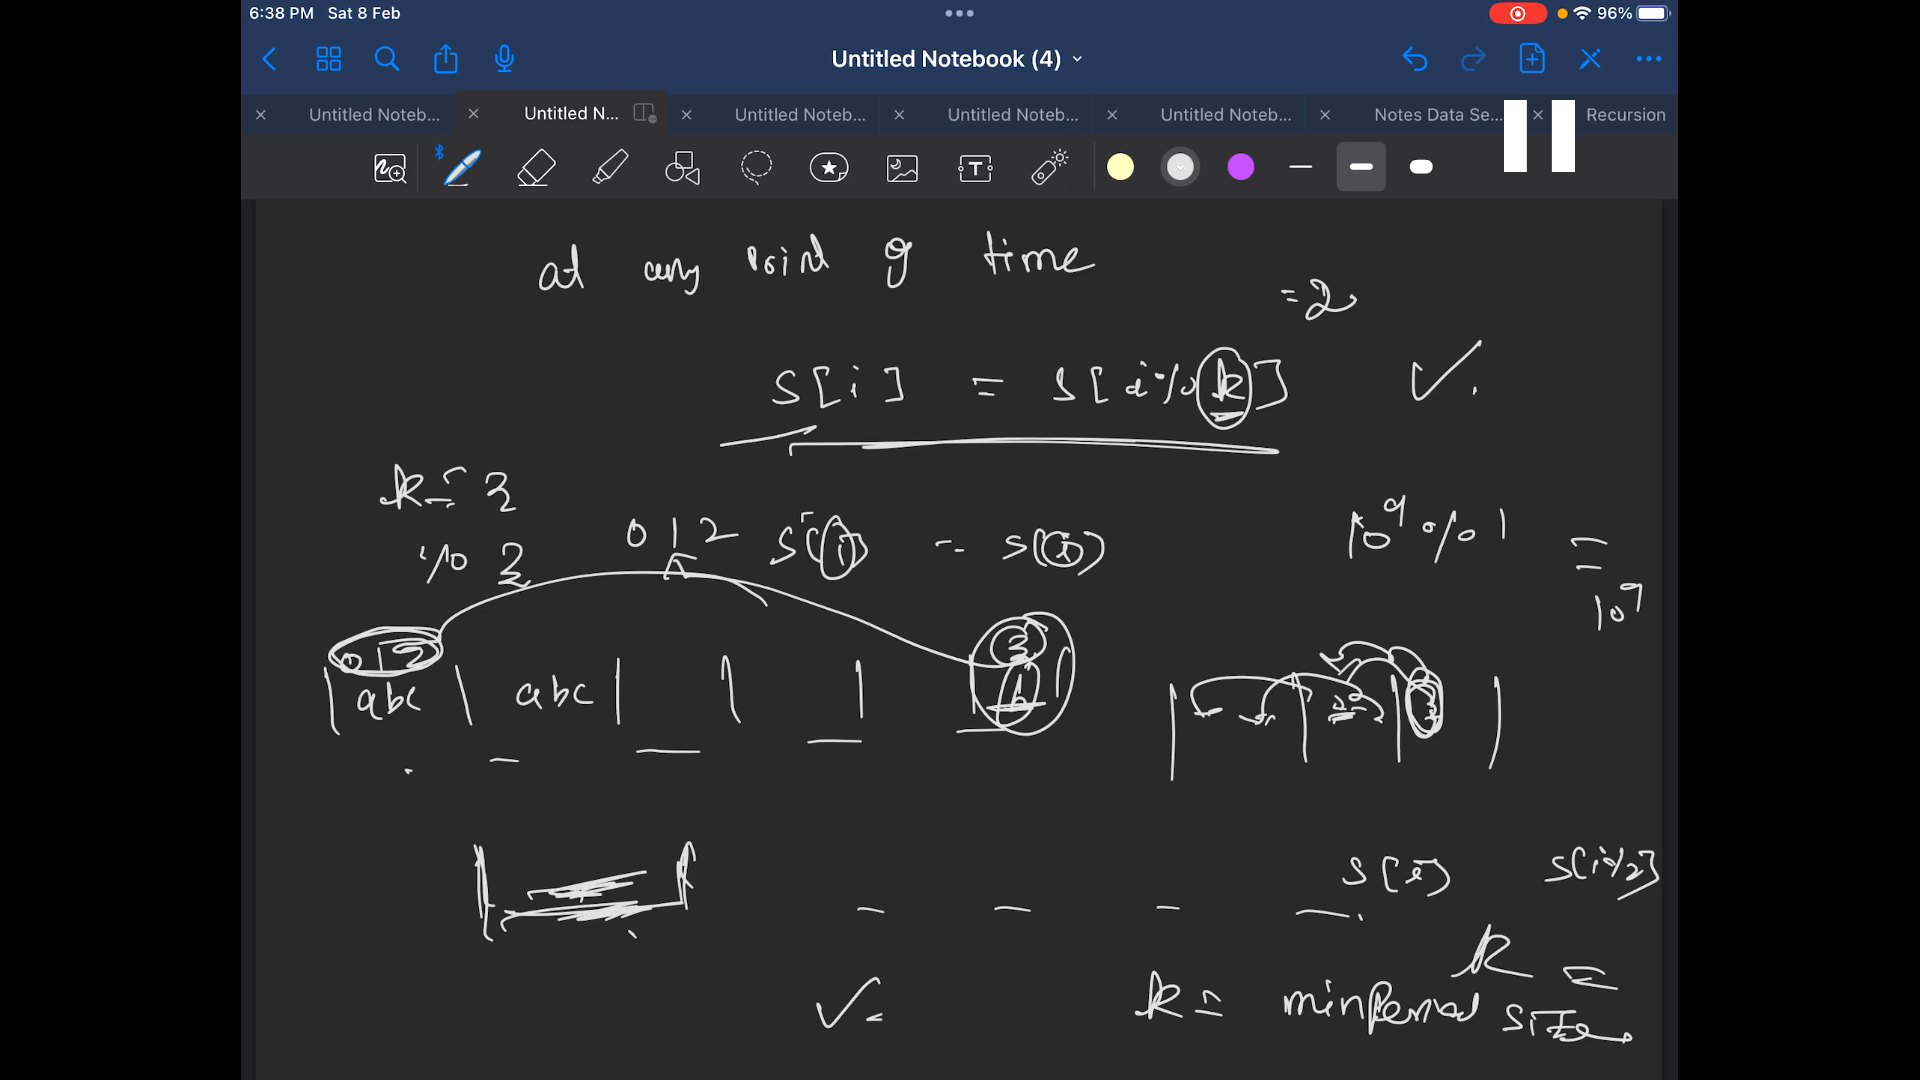 6:38 PM Sat 8 Feb
96%
Untitled Notebook (4)
Untitled Noteb...
Untitled N...
Untitled Noteb...
Untitled Noteb...
Untitled Noteb...
Notes Data Se...
Recursion
at any point of time
= 2
S[i] = S[i % k]
k = 3
0 1 2 S(i) = S(i)
10^9 % 1 = 10^9
% 3
0 1 2
abc abc
S[i] S[i%2]
k =
k = minPeriod size